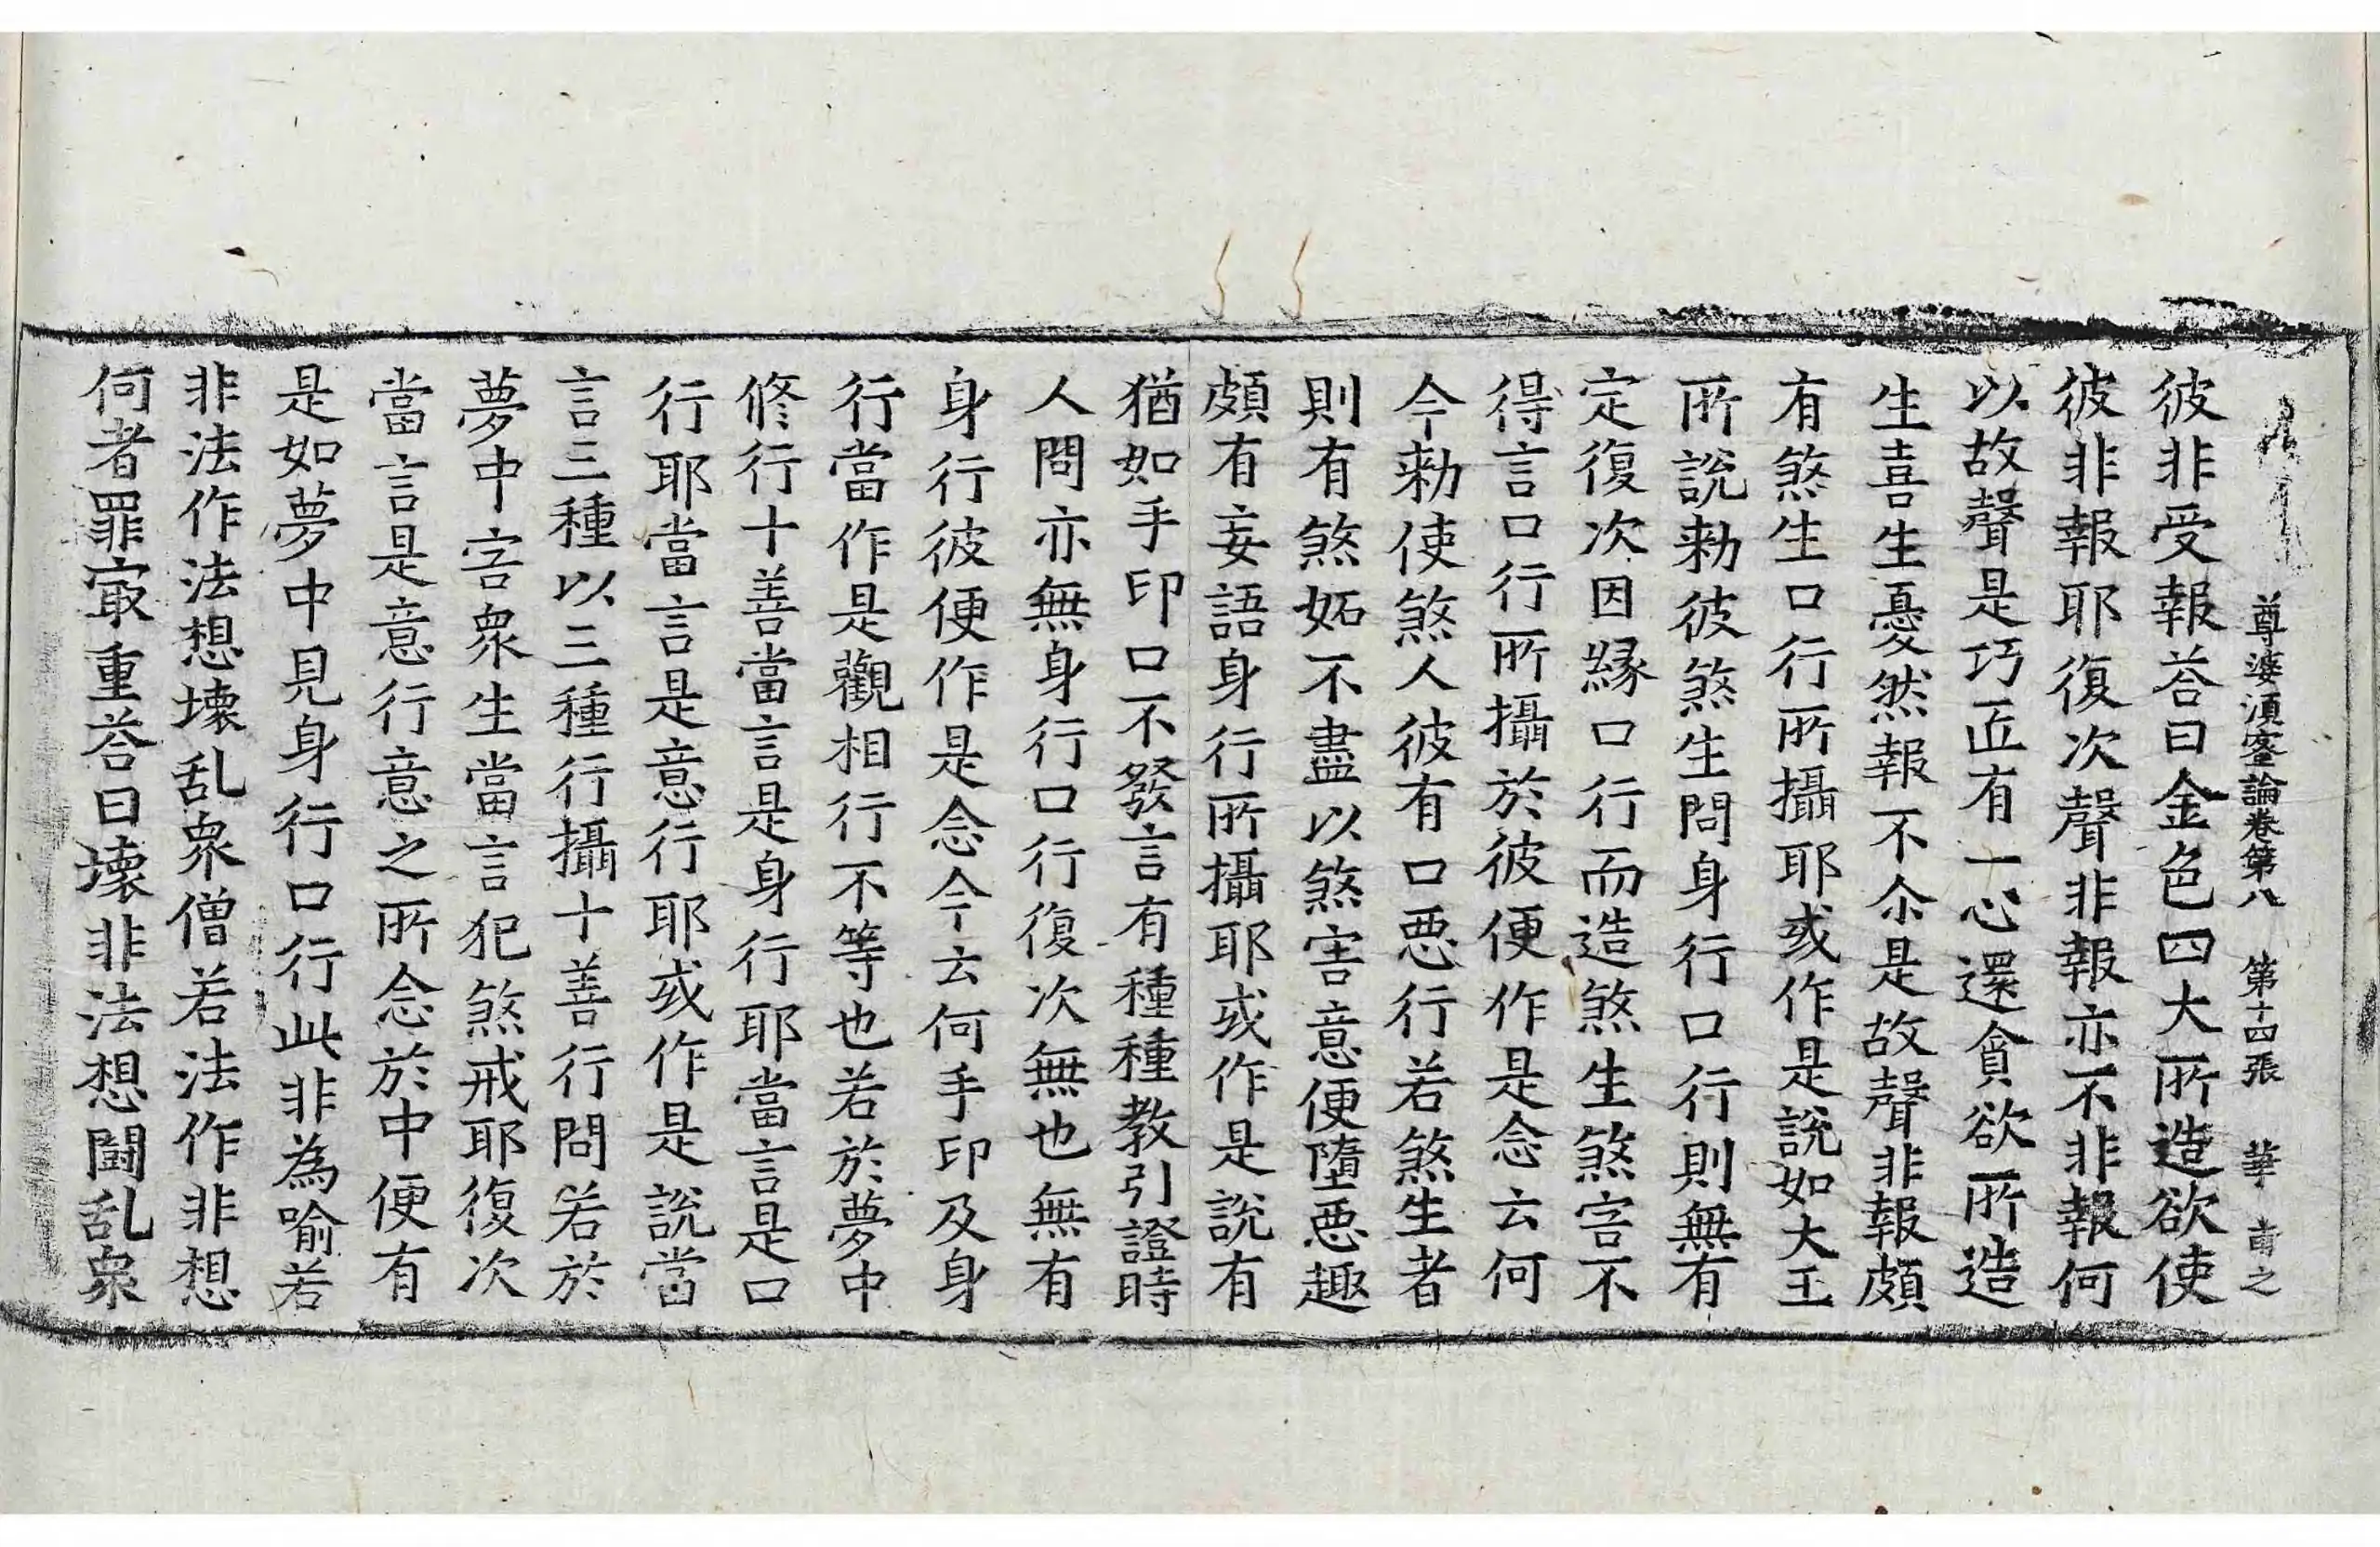 尊婆湏蜜論卷第八　第十四張　華　之
彼非受報荅曰金色四大所造欲使
彼非報耶復次聲非報亦不非報何
以故聲是巧匠有一心還貪欲所造
生喜生憂然報不尒是故聲非報頗
有煞生口行所攝耶或作是說如大王
所說勑彼煞生問身行口行則無有
定復次因緣口行而造煞生煞害不
得言口行所攝於彼便作是念云何
今勑使煞人彼有口惡行若煞生者
則有煞妬不盡以煞害意便墮惡趣
頗有妄語身行所攝耶或作是說有
猶如手印口不發言有種種教引證時
人問亦無身行口行復次無也無有
身行彼便作是念今云何手印及身
行當作是觀相行不等也若於夢中
修行十善當言是身行耶當言是口
行耶當言是意行耶或作是說當
言三種以三種行攝十善行問若於
夢中害衆生當言犯煞戒耶復次
當言是意行意之所念於中便有
是如夢中見身行口行此非為喻若
非法作法想壞乱衆僧若法作非想
何者罪㝡重荅曰壞非法想鬪乱衆